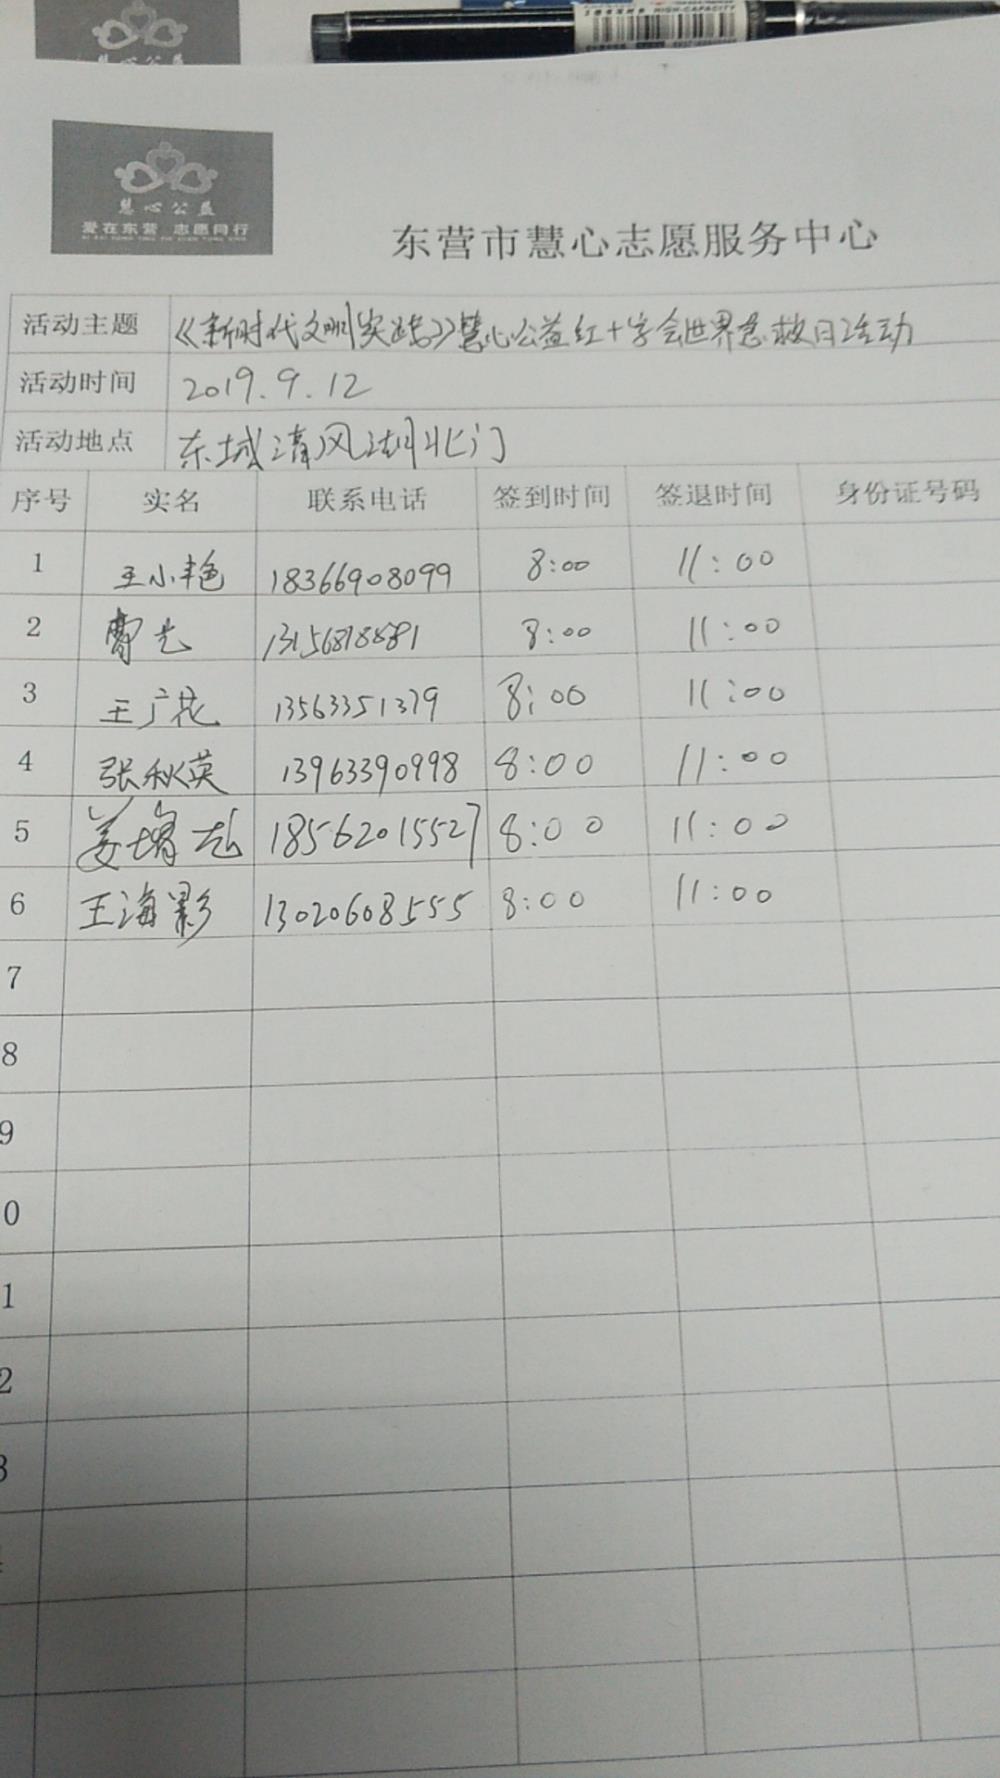 慧心公益
HIGH-CAPACITY
慧心公益
爱在东营 志愿同行
东营市慧心志愿服务中心
活动主题 《新时代文明实践》慧心公益红十字会世界急救日活动
活动时间 2019.9.12
活动地点 东城清风湖北门
序号 实名 联系电话 签到时间 签退时间 身份证号码
1 王小艳 18366908099 8:00 11:00
2 8:00 11:00
3 王广花 13563351379 8:00 11:00
4 张秋英 13963390998 8:00 11:00
5 姜增 18562015527 8:00 11:00
6 王海影 13020608555 8:00 11:00
7
8
9
0
1
2
3